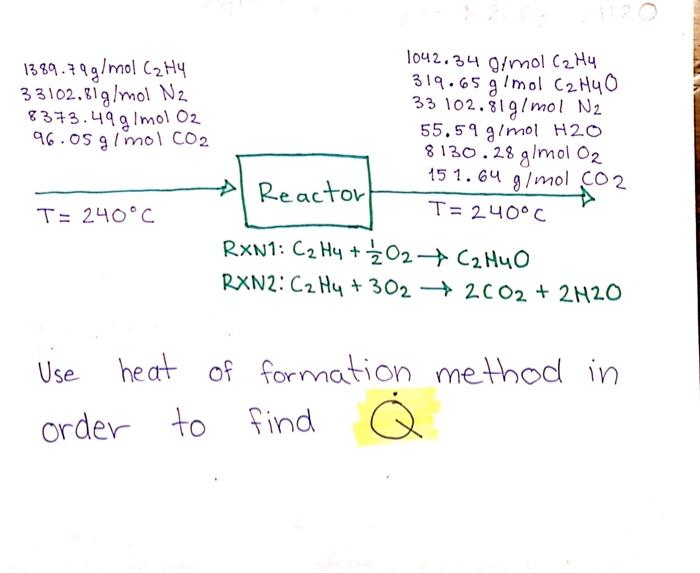 1389.79g/mol C2H4
33102.81g/mol N2
8373.49g/mol O2
96.05g/mol CO2
T= 240°C
Reactor
1042.34 g/mol C2H4
319.65 g/mol C2H4O
33 102.81g/mol N2
55.59 g/mol H2O
8130.28 g/mol O2
151.64 g/mol CO2
T= 240°C
RXN1: C2H4 + 1/2 O2 → C2H4O
RXN2: C2H4 + 3O2 → 2CO2 + 2H2O
Use heat of formation method in
order to find Q̇